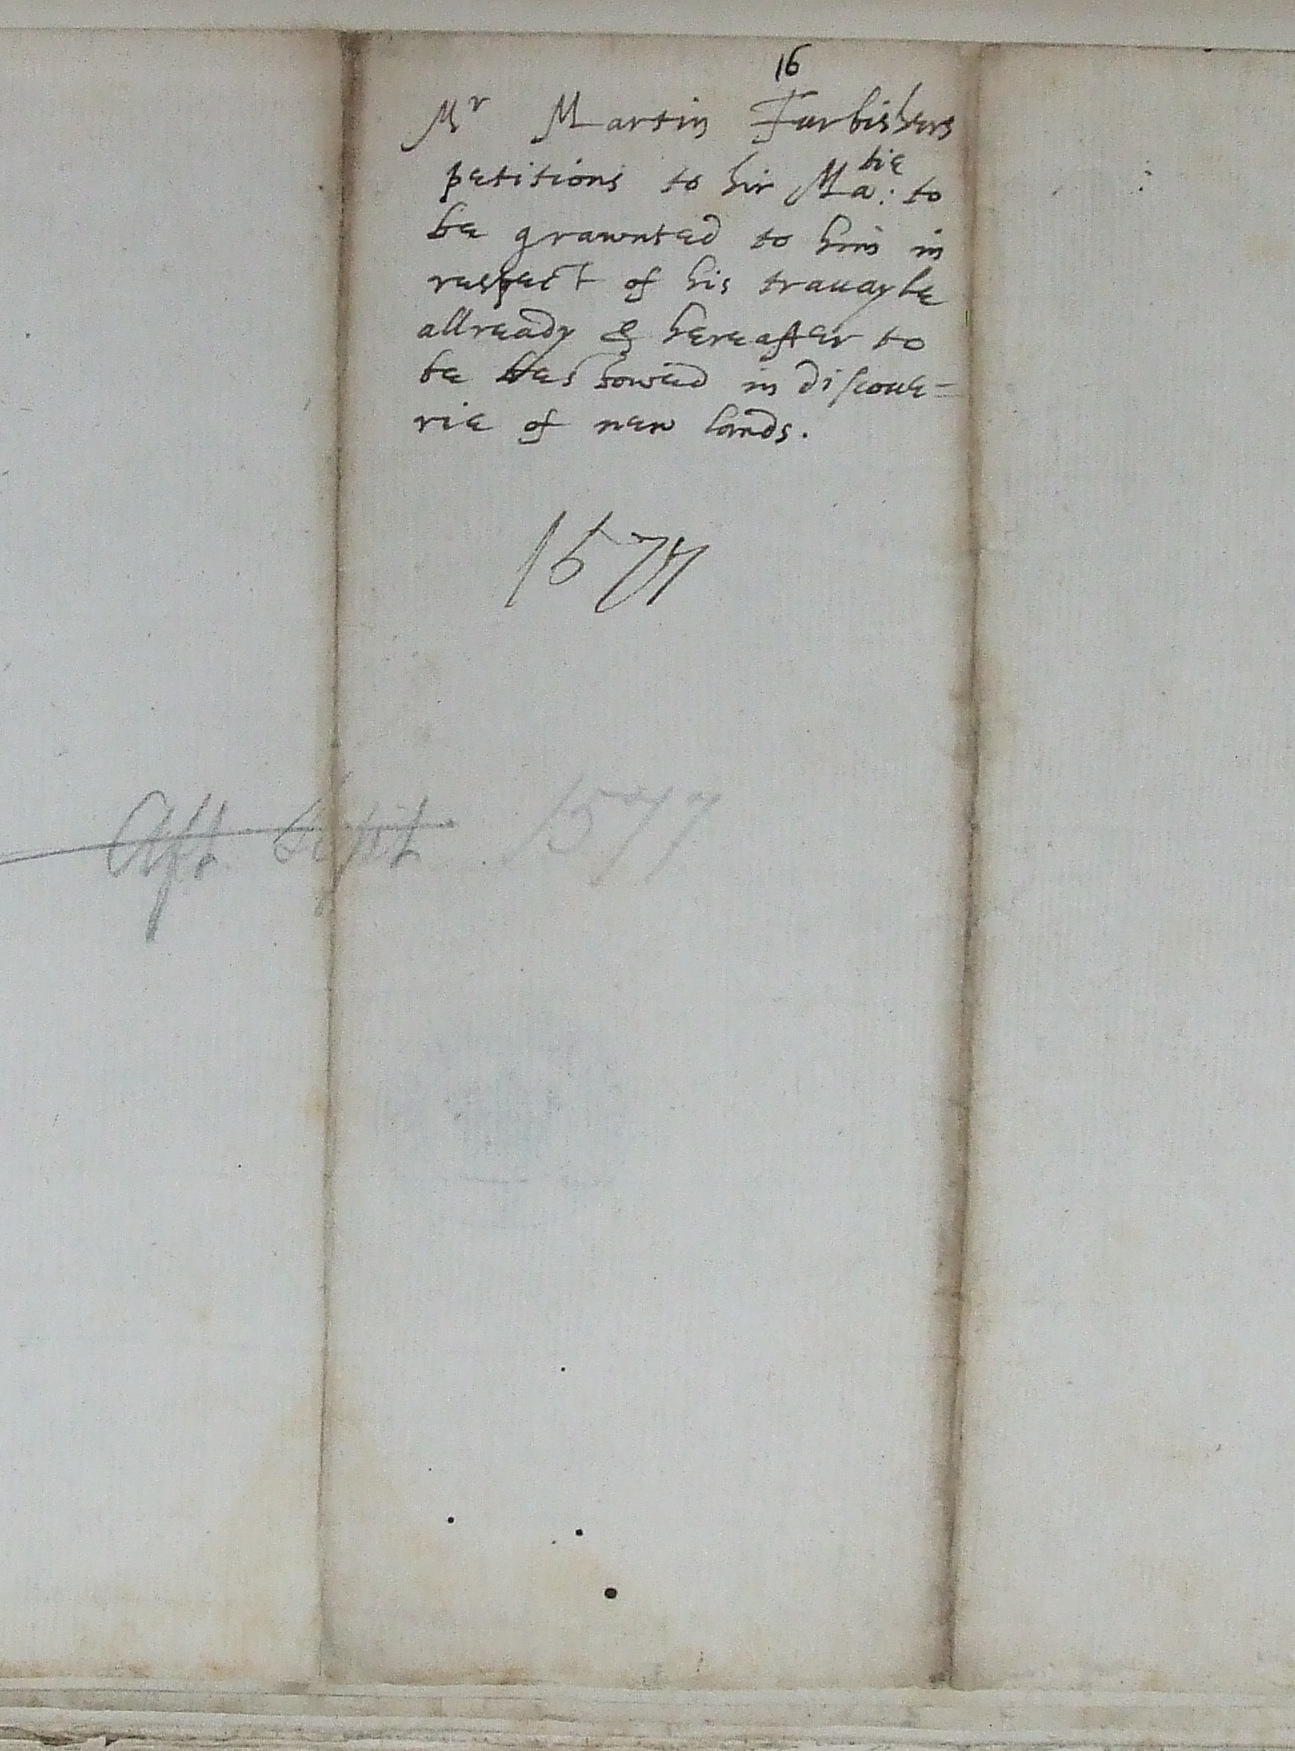 16
Mr Martin Furbishers
petitions to hir Matie: to
be grawnted to him in
respect of his trauayle
allready & hereafter to
be bestowed in discoue=
rie of new lands.
1577
Aft Sept 1577